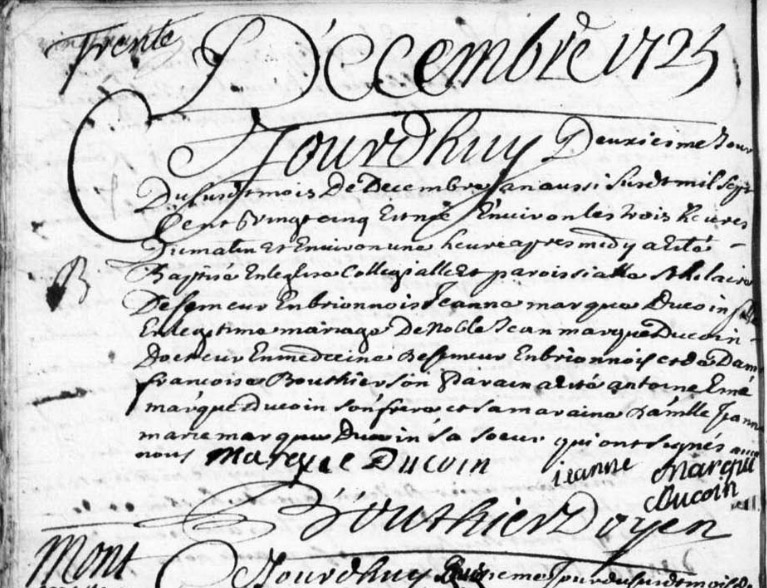 Trente
Décembre 1725
Jourdhuy Deuxiesme Jour
Dususdt mois De Decembre an aussi susdt mil sept
Cent Vingt cinq Est née Environ les trois heures
Du matin Et Environ une heure apres midy a Esté
B
Baptisé En leglise Collegialle Et paroissialle St hilaire
De semeur En brionnois Jeanne marque Ducoin
En legitime mariage De Noble Jean marque Ducoin
Docteur En medecine De semeur En brionnois et de Dame
francoise Bouthier son parain a esté antoine Emé
marque Ducoin son frere et sa maraine Damlle Jeanne
marie marque Ducoin sa soeur qui ont signés avec
nous Marque Ducoin jeanne Marque
Ducoin
Bouthier Doyen
Mont
Jourdhuy Jour du susdt mois De